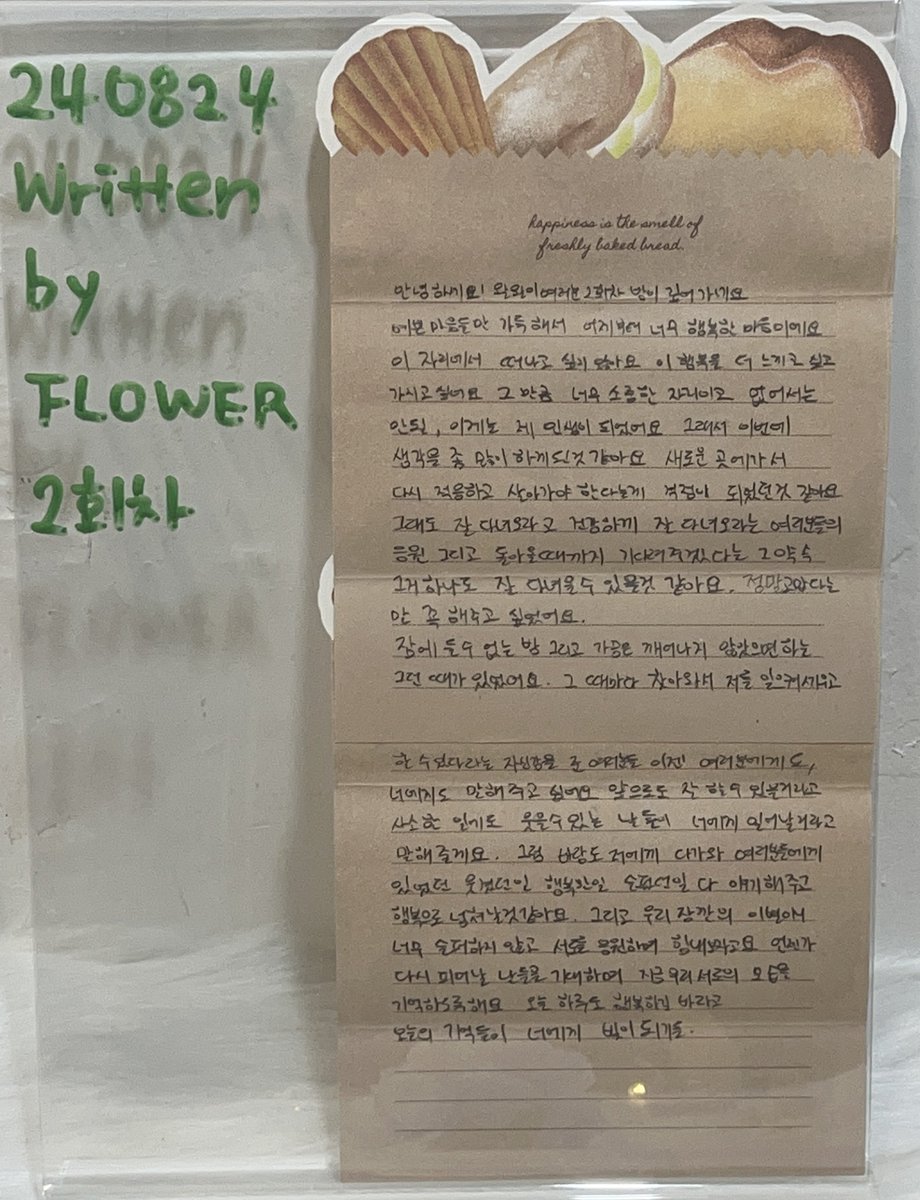 240824
Written
by
FLOWER
2회차
happiness is the smell of
freshly baked bread.
안녕하세요! 왕왕이 여러분 2회차 밤이 깊어 가네요
예쁜 마음들만 가득해서 어제부터 너무 행복한 마음이에요
이 자리에서 떠나고 싶지 않아요 이 행복을 더 느끼고 싶고
가지고 싶어요 그 만큼 너무 소중한 자리이고 없어서는
안될, 이게는 제 인생이 되었어요 그래서 이번에
생각을 좀 많이 하게 된것 같아요 새로운 곳에 가서
다시 적응하고 살아가야 한다는게 걱정이 되었던것 같아요
그래도 잘 다녀오라고 건강하게 잘 다녀오라는 여러분들의
응원 그리고 돌아올때까지 기다려주겠다는 그 약속
그거 하나로 잘 다녀올수 있을것 같아요. 정말 고맙다는
말 꼭 해주고 싶었어요.
잠에 들수 없는 밤 그리고 가끔은 깨어나지 않았으면 하는
그런 때가 있었어요. 그 때마다 찾아와서 저를 일으켜 세우고
할 수 있다라는 자신감을 준 여러분들 이젠 여러분에게도,
너에게도 말해주고 싶어요 앞으로도 잘 할수 있을거라고
사소한 일에도 웃을수 있는 날들이 너에게 일어날거라고
말해줄게요. 그럼 바람도 저에게 다가와 여러분들에게
있었던 웃겼던일 행복한일 슬펐던일 다 얘기해주고
행복으로 넘쳐날것 같아요. 그리고 우리 잠깐의 이별에
너무 슬퍼하지 않고 서로를 응원하며 힘내보자고요 언젠가
다시 피어날 나들을 기대하며 지금 우리 서로의 모습을
기억하도록해요 오늘 하루도 행복하길 바라고
오늘의 기억들이 너에게 빛이 되기를.